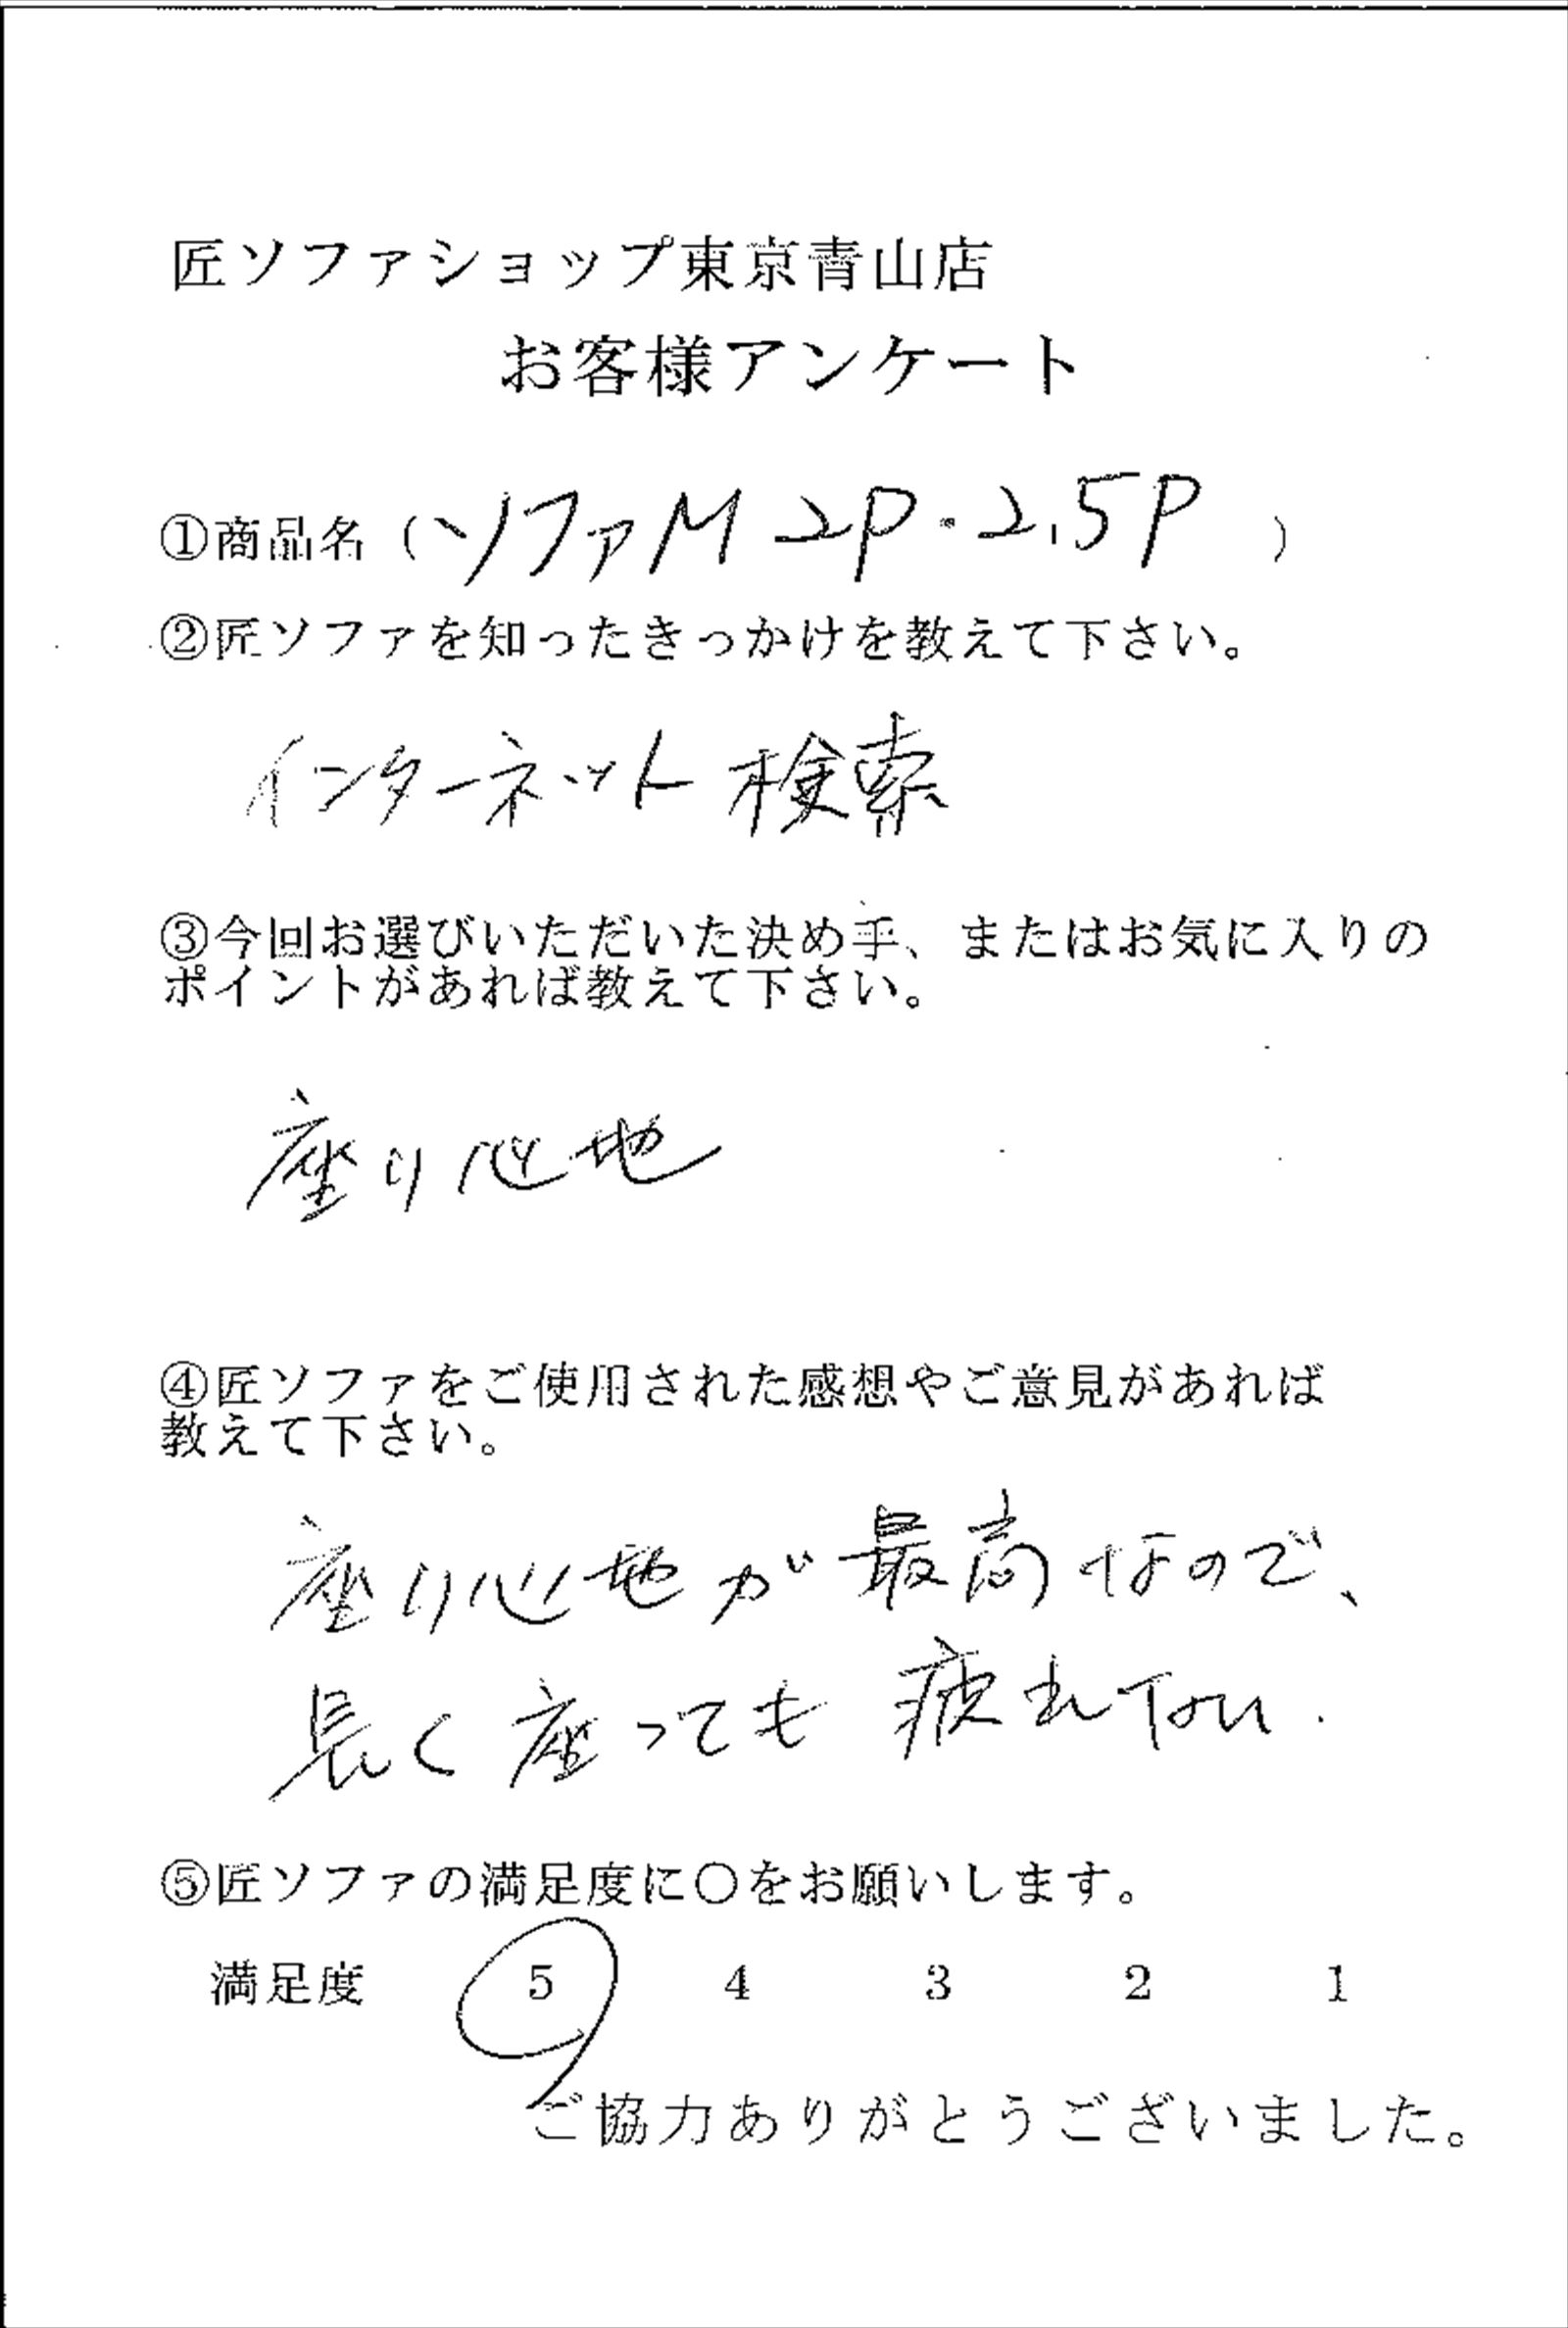 匠ソファショップ東京青山店
お客様アンケート
①商品名（ソファM 2P・2.5P）
②匠ソファを知ったきっかけを教えて下さい。
インターネット検索
③今回お選びいただいた決め手、またはお気に入りの
ポイントがあれば教えて下さい。
座り心地
④匠ソファをご使用された感想やご意見があれば
教えて下さい。
座り心地が最高なので、
長く座っても疲れない.
⑤匠ソファの満足度に〇をお願いします。
満足度 5 4 3 2 1
ご協力ありがとうございました。